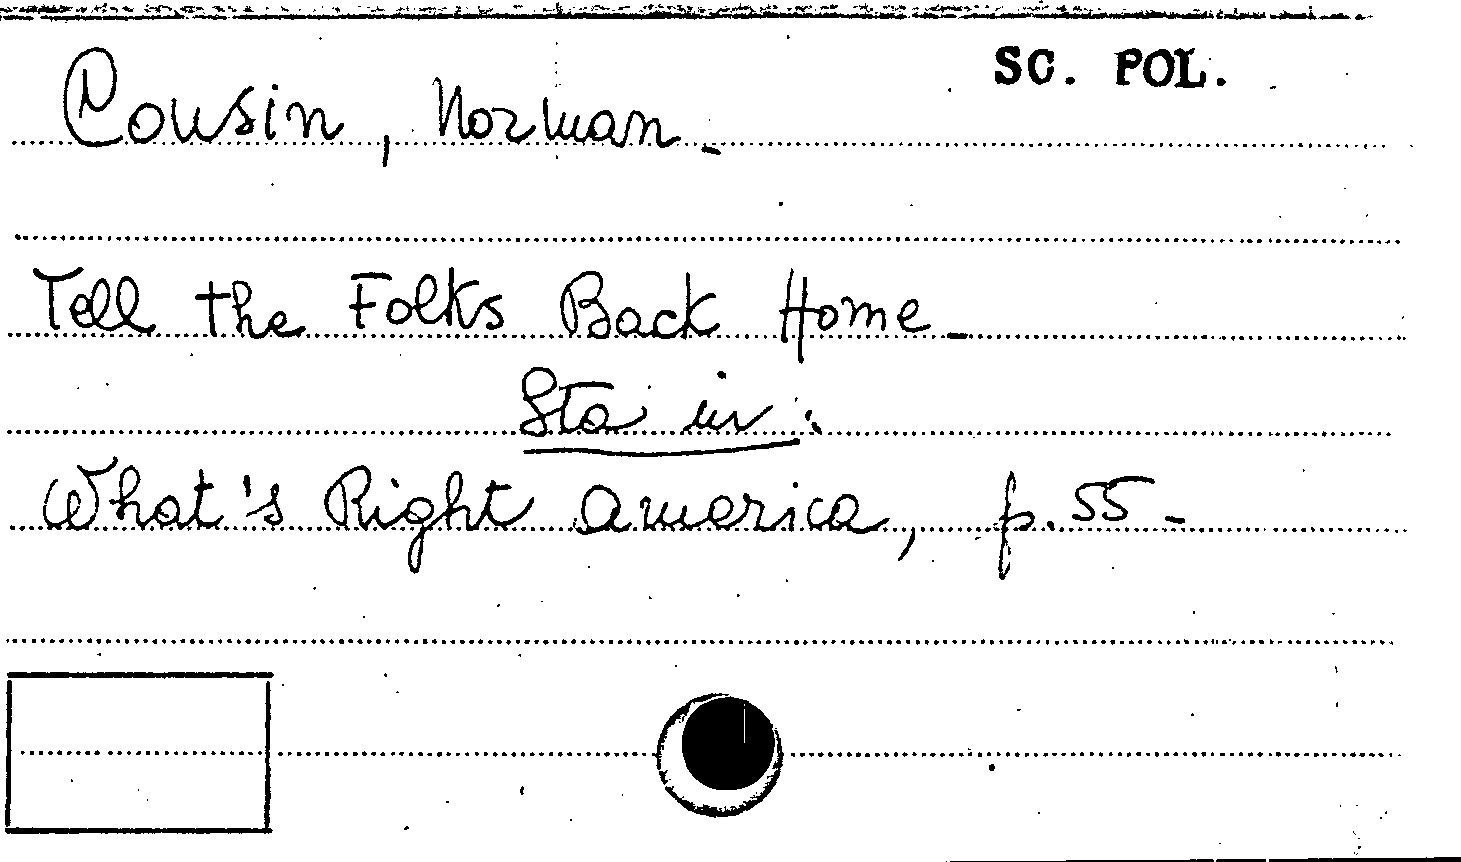 SC. POL.
Cousin, Norman -
Tell the Folks Back Home -
Sta in:
What's Right America, p. 55 -